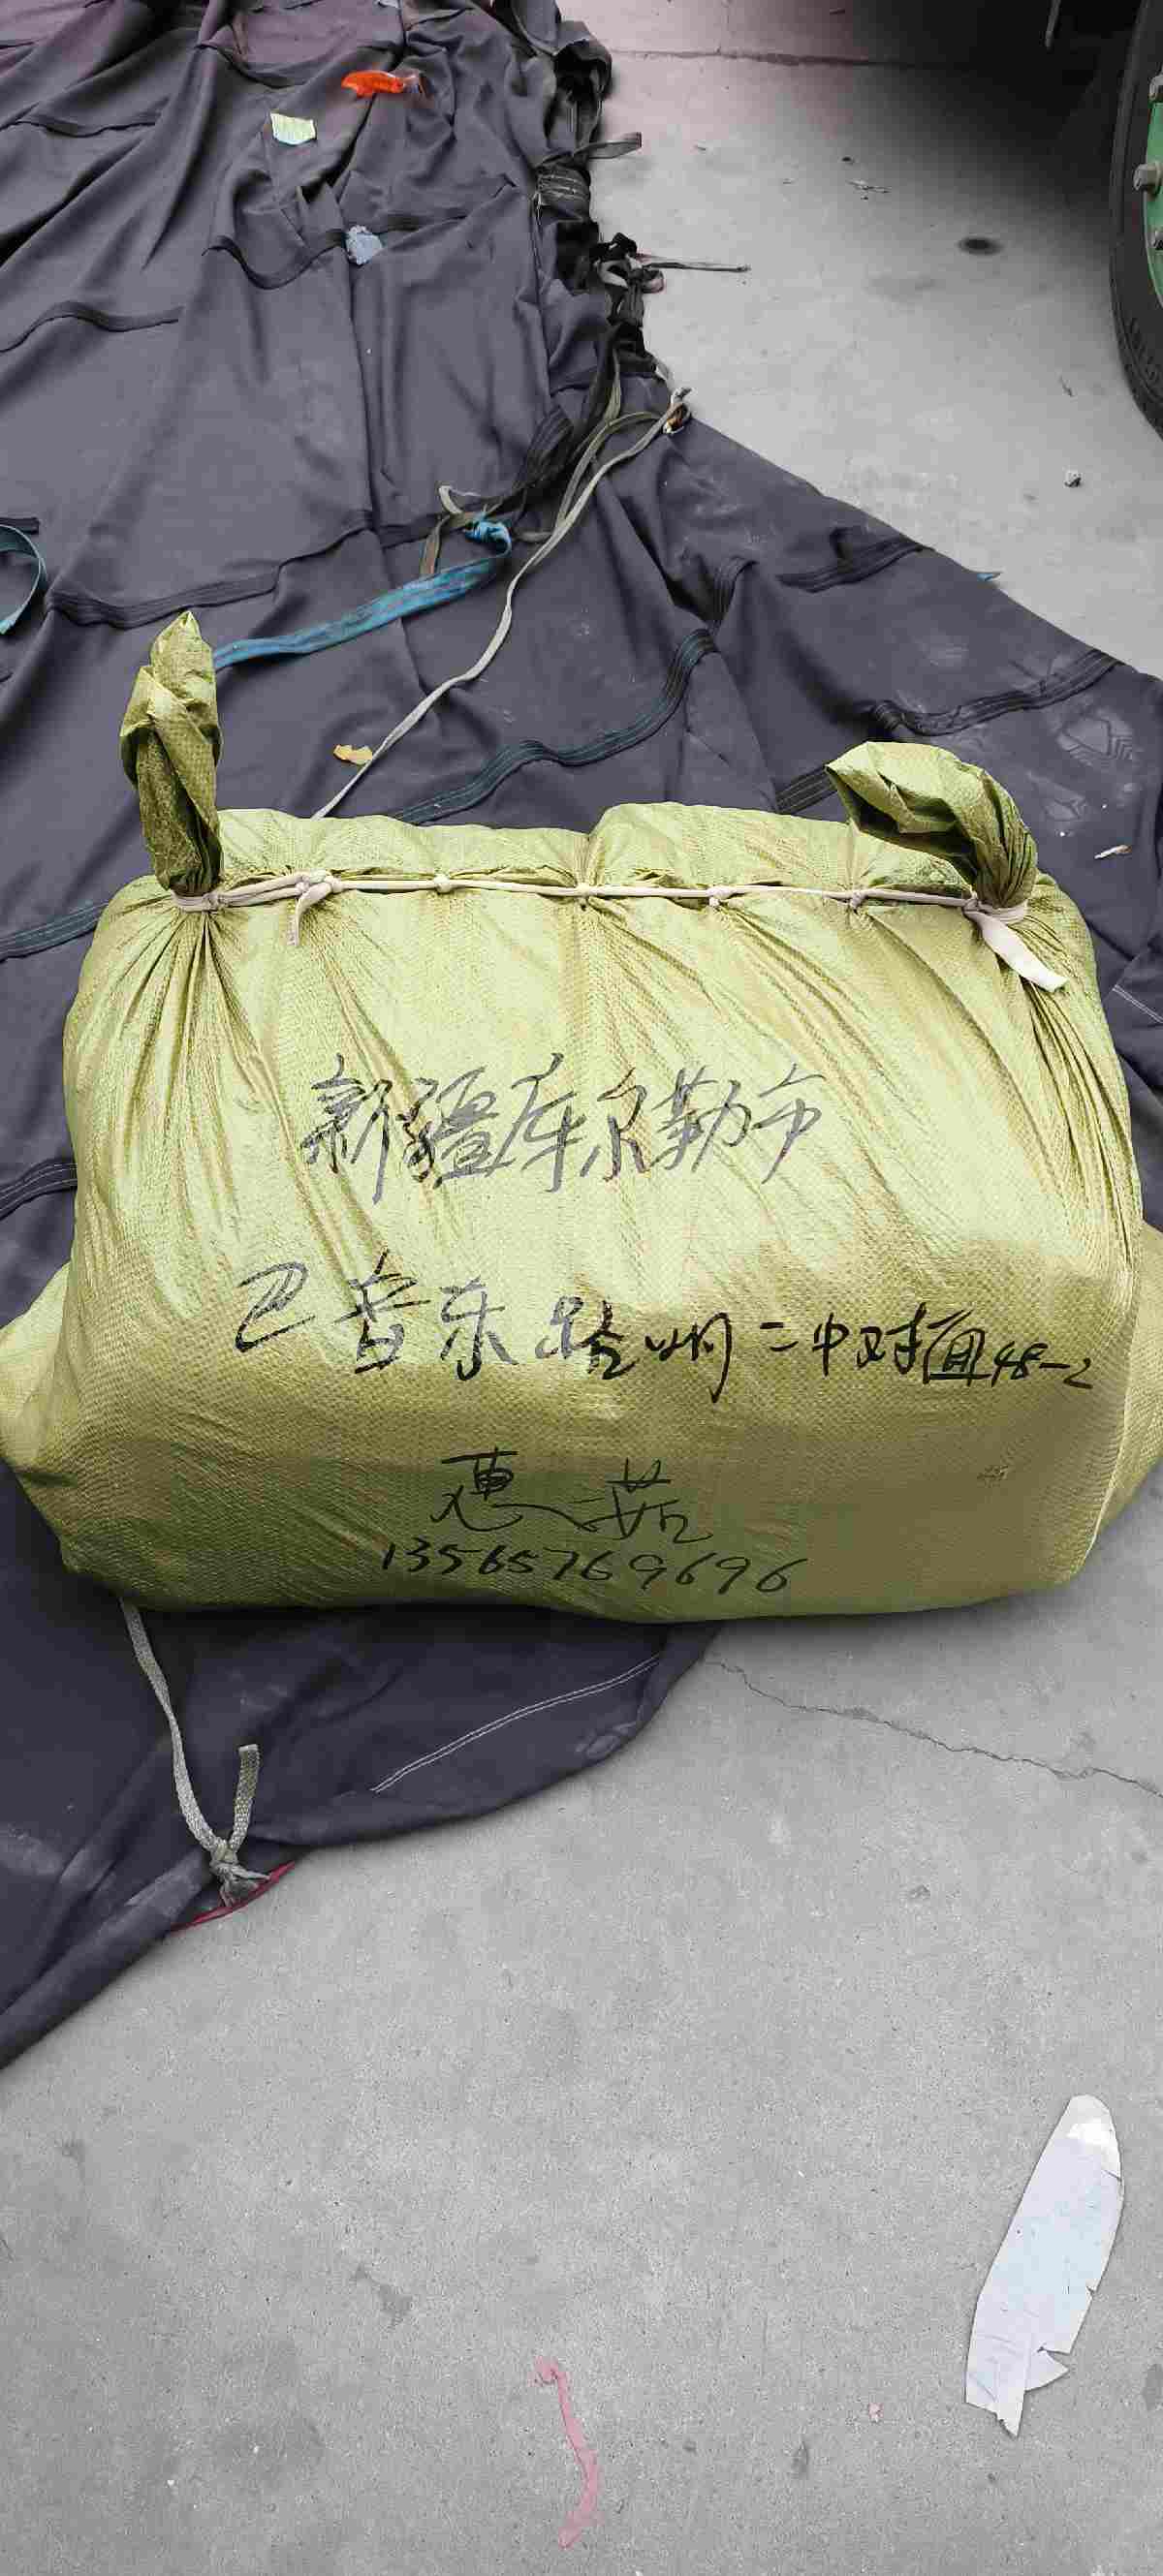 新疆库尔勒市
巴音东路州二中对面48-2
惠茹
13565769696